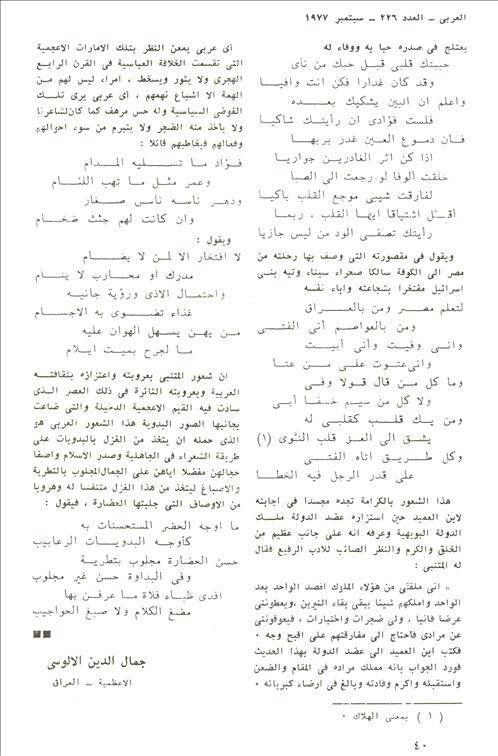 العربي ـ العدد ٢٢٦ ـ سبتمبر ١٩٧٧
يعتلج في صدره حبا به ووفاء له
حببتك قلبي قبل حبك من نأى
وقد كان غدارا فكن انت وافيا
واعلم ان البين يشكيك بعده
فلست فؤادي ان رأيتك شاكيا
فان دموع العين غدر بربها
اذا كن اثر الغادرين جواريا
خلقت ألوفا لو رجعت الى الصبا
لفارقت شيبي موجع القلب باكيا
أقل اشتياقا ايها القلب ، ربما
رأيتك تصفي الود من ليس جازيا
ويقول في مقصورته التي وصف بها رحلته من
مصر الى الكوفة سالكا صحراء سيناء وتيه بني
اسرائيل مفتخرا بشجاعته واباء نفسه
لتعلم مصر ومن بالعراق
ومن بالعواصم أنى الفتى
وانى وفيت وأنى أبيت
وانى عتوت على من عتا
وما كل من قال قولا وفى
ولا كل من سيم خسفا أبى
ومن يك قلب كقلبي له
يشق الى العز قلب التوى (١)
وكل طريق اتاه الفتى
على قدر الرجل فيه الخطا
هذا الشعور بالكرامة تجده مجسدا في اجابته
لابن العميد حين استزاره عضد الدولة ملك
الدولة البويهية وعرفه انه على جانب عظيم من
الخلق والكرم والنظر الصائب للادب الرفيع فقال
له المتنبي :
« انى ملقى من هؤلاء الملوك اقصد الواحد بعد
الواحد واملكهم شيئا يبقى بقاء النيرين ،ويعطونني
عرضا فانيا ، ولى ضجرات واختيارات ، فيعوقونني
عن مرادى فاحتاج الى مفارقتهم على اقبح وجه ٠
فكتب ابن العميد الى عضد الدولة بهذا الحديث
فورد الجواب بانه مملك مراده في المقام والضعن
واستقبله واكرم وفادته وبالغ في ارضاء كبريائه ٠
( ١ ) بمعنى الهلاك ٠
أى عربي يمعن النظر بتلك الامارات الاعجمية
التي تقسمت الخلافة العباسية في القرن الرابع
الهجرى ولا يثور ويسخط ، امراء ليس لهم من
الهمة الا اشباع نهمهم ، أى عربي يرى تلك
الفوضى السياسية وله حس مرهف كما كان لشاعرنا
ولا يأخذ منه الضجر ولا يتبرم من سوء احوالهم
وفعالهم فيخاطبهم قائلا :
فؤاد ما تسليه المدام
وعمر مثل ما تهب اللئام
ودهر ناسه ناس صغار
وان كانت لهم جثث ضخام
ويقول :
لا افتخار الا لمن لا يضام
مدرك او محارب لا ينام
واحتمال الاذى ورؤية جانيه
غذاء تضوى به الاجسام
من يهن يسهل الهوان عليه
ما لجرح بميت ايلام
ان شعور المتنبي بعروبته واعتزازه بثقافته
العربية وبعروبته الثائرة في ذلك العصر الذى
سادت فيه القيم الاعجمية الدخيلة والتي ضاعت
بجانبها الصور البدوية هذا الشعور العربي هو
الذى حمله ان يتخذ من الغزل بالبدويات على
طريقة الشعراء في الجاهلية وصدر الاسلام واصفا
جمالهن مفضلا اياهن على الجمال المجلوب بالتطرية
والاصباغ ليتخذ من هذا الغزل متنفسا له وهروبا
من الاوصاف التي جلبتها الحضارة ، فيقول :
ما اوجه الحضر المستحسنات به
كأوجه البدويات الرعابيب
حسن الحضارة مجلوب بتطرية
وفى البداوة حسن غير مجلوب
افدى ظباء فلاة ما عرفن بها
مضغ الكلام ولا صبغ الحواجيب
جمال الدين الالوسي
الاعظمية ـ العراق
٤٠